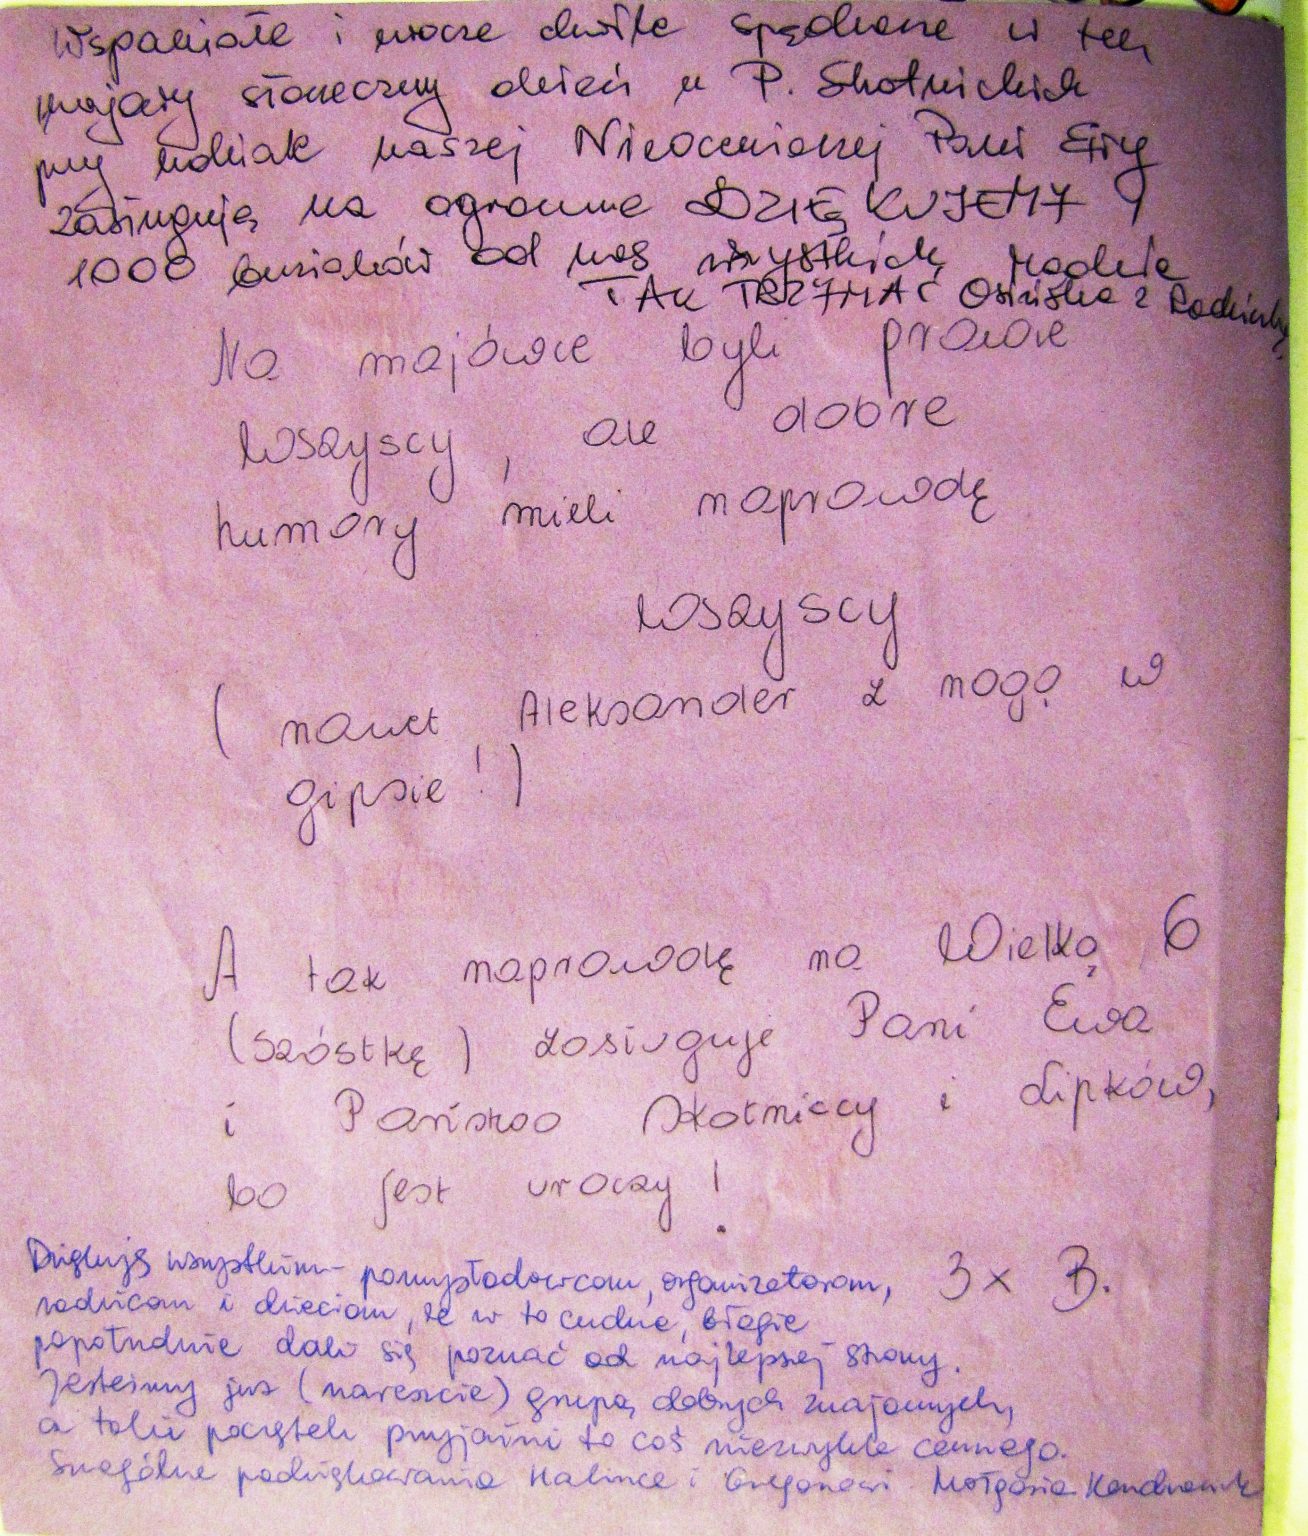 Wspaniałe i urocze chwile spędzone w ten
majowy słoneczny dzień u P. Skotnickich
przy udziale naszej Nieocenionej Pani Ewy
zasługują na ogromne DZIĘKUJEMY
1000 buziaków od nas wszystkich
TAK TRZYMAĆ z Rodzinką
Na majówce byli prawie
wszyscy, ale dobre
humory mieli naprawdę
wszyscy
(nawet Aleksander z nogą w
gipsie!)
A tak naprawdę na Wielką 6
(szóstkę) zasługuje Pani Ewa
i Państwo Skotniccy i Lipków,
bo jest uroczy!
3 x B.
Dziękuję wszystkim - pomysłodawcom, organizatorom,
rodzicom i dzieciom, że w to cudne, błogie
popołudnie dali się poznać od najlepszej strony.
Jesteśmy już (nareszcie) grupą dobrych znajomych,
a taki początek przyjaźni to coś niezwykle cennego.
Szczególne podziękowania Halince i Grzegorzowi. Małgosia